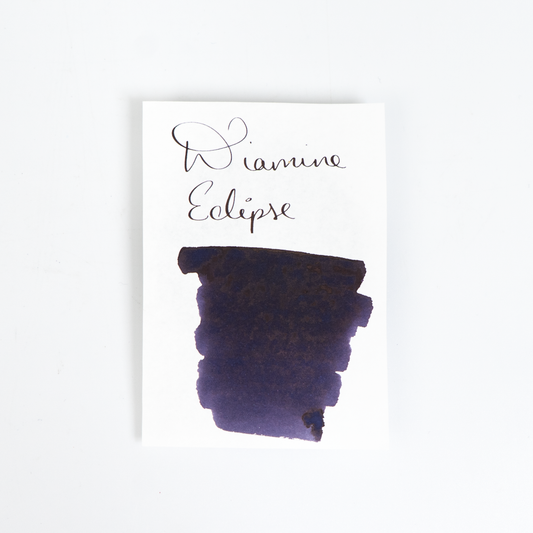 Diamine
Eclipse